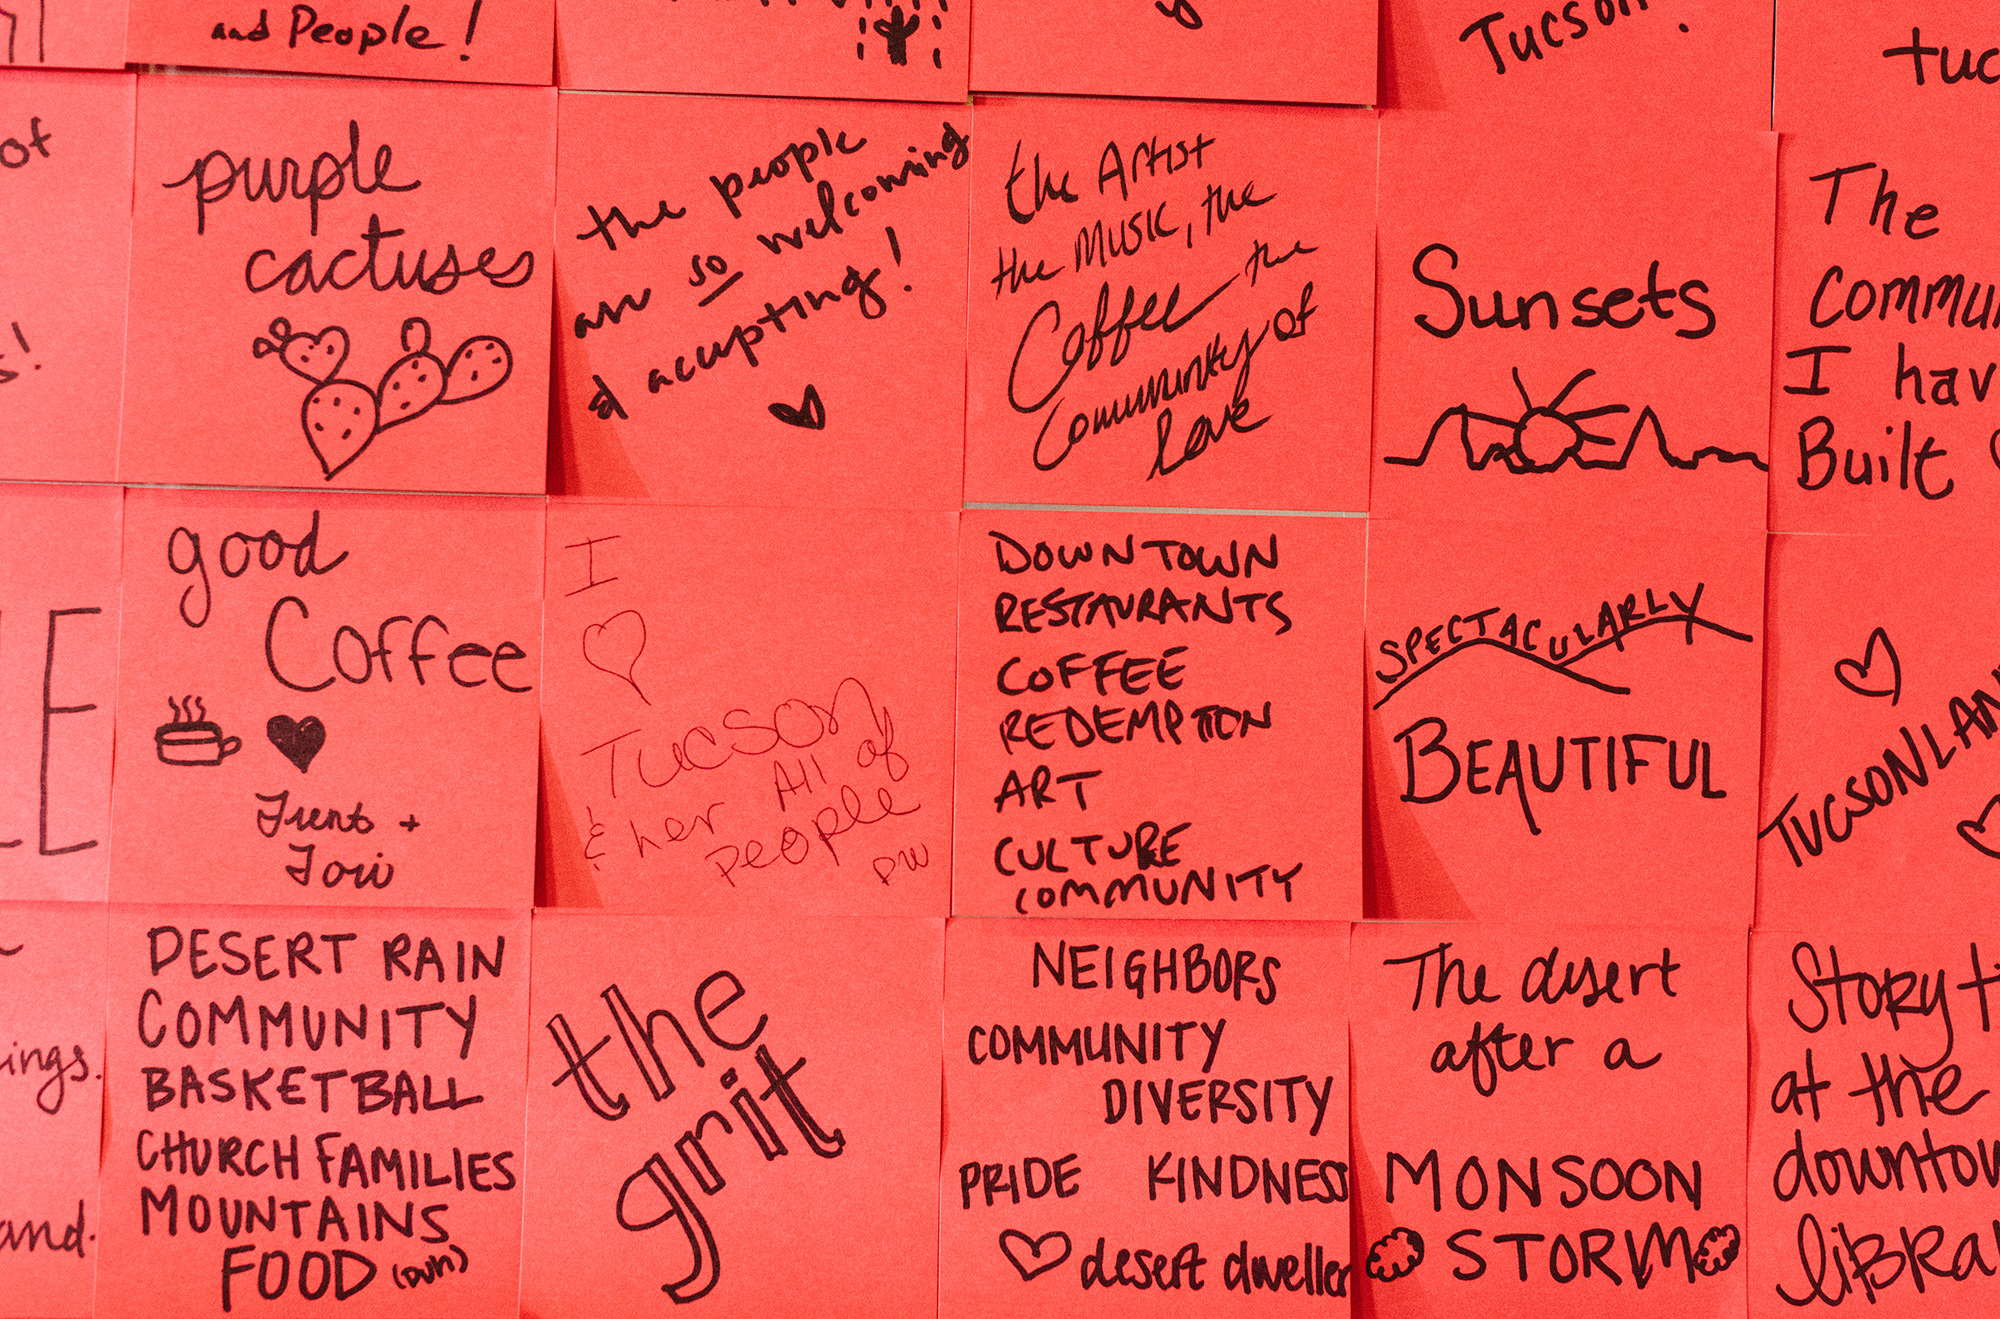 and People!
Tucson.
tuc
of
s!
purple
cactuses
the people
are so welcoming
& accepting!
the Artist
the Music, the
Coffee the
Community of
love
Sunsets
The
Commu
I hav
Built
LE
good
Coffee
I
Tucson
& her All of
people
DW
DOWNTOWN
RESTAURANTS
COFFEE
REDEMPTION
ART
CULTURE
COMMUNITY
SPECTACULARLY
BEAUTIFUL
TUCSONLAN
ings.
and.
DESERT RAIN
COMMUNITY
BASKETBALL
CHURCH FAMILIES
MOUNTAINS
FOOD (DUH)
the
grit
NEIGHBORS
COMMUNITY
DIVERSITY
PRIDE KINDNESS
desert dweller
The desert
after a
MONSOON
STORM
Story ti
at the
downtow
libra